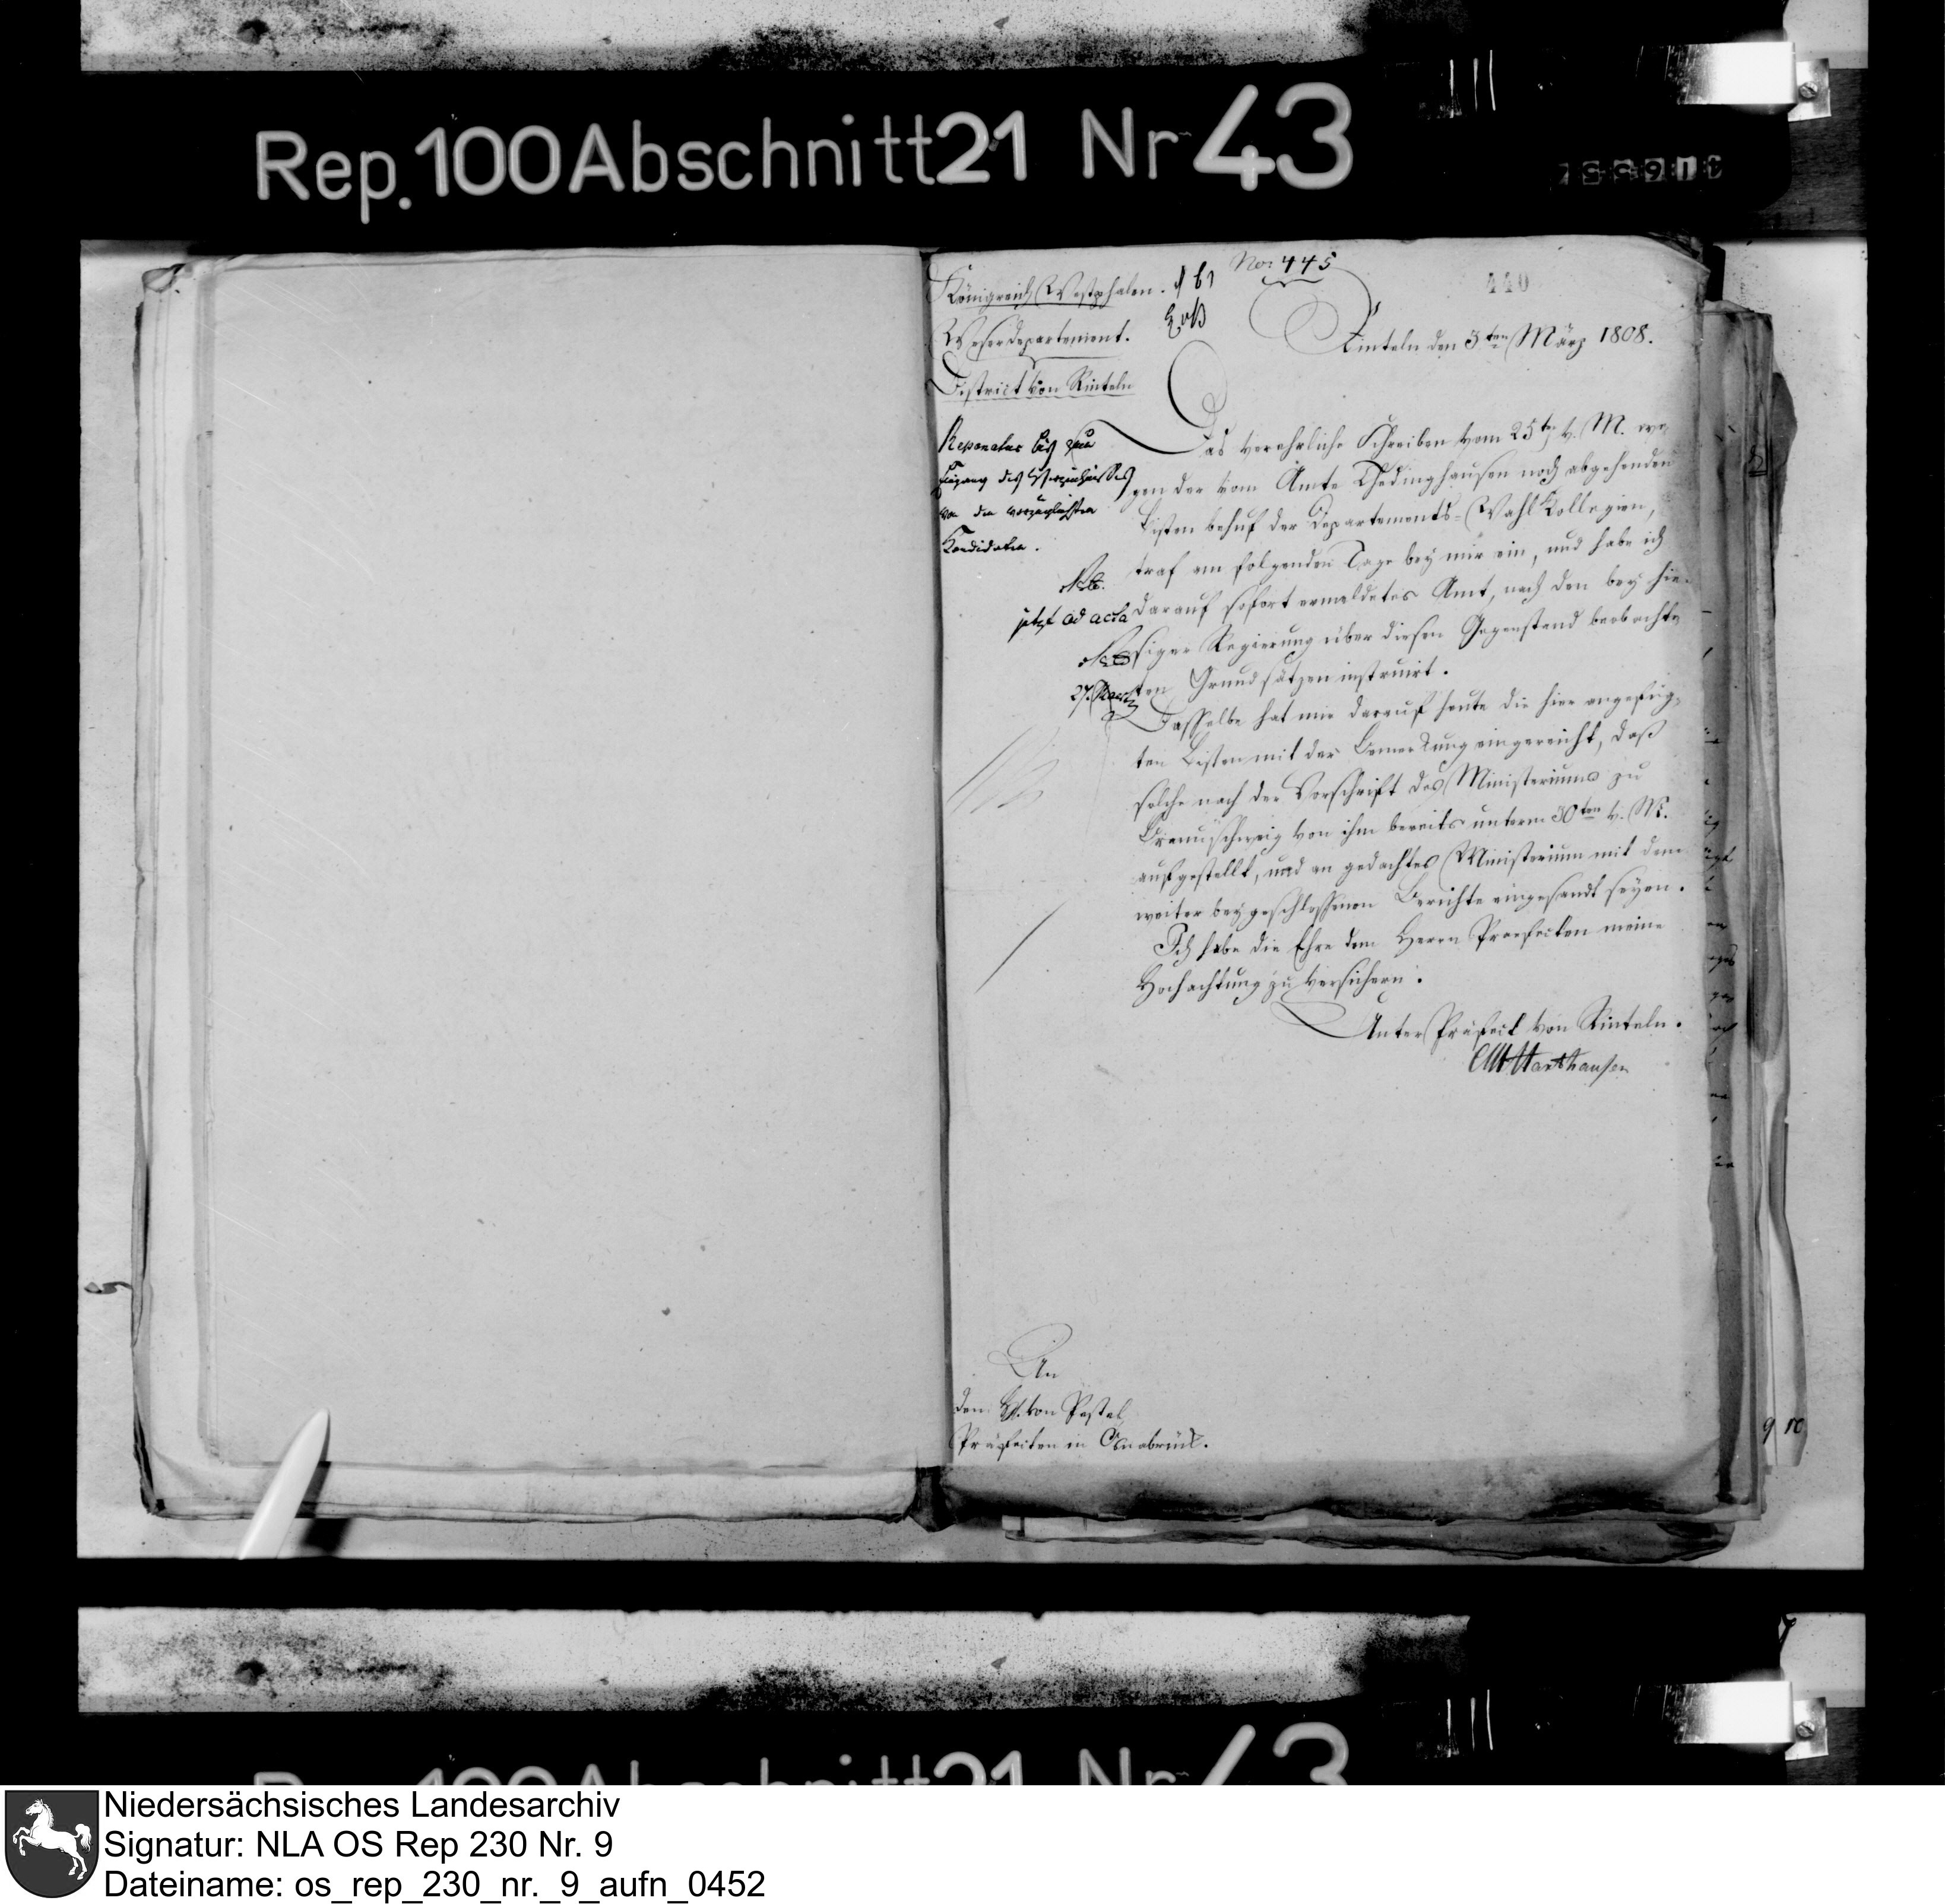 Rep. 100 Abschnitt 21 Nr 43
No: 445
440
Königreich Westphalen.
Weserdepartement.
District von Rinteln
Rinteln den 5ten März 1808.
Reponatur bis zum
Eingang des Verzeichnisses
von den vorzüglichsten
Kandidaten.
jetzt ad acta
27. März
Das verehrliche Schreiben vom 25ten v. M. we-
gen der vom Amte Thedinghausen noch abgehenden
Listen behuf der Departements-Wahl Kollegien,
traf am folgenden Tage bey mir ein, und habe ich
darauf sofort ermeldetes Amt, nach den bey hie-
siger Regierung über diesen Gegenstand beobachte-
ten Grundsätzen instruirt.
Dasselbe hat mir darauf heute die hier angefüg-
ten Listen mit der Bemerkung eingereicht, daß
solche nach der Vorschrift des Ministeriums zu
Braunschweig von ihm bereits unterm 30ten v. M.
aufgestellt, und an gedachtes Ministerium mit dem
weiter beygeschlossenen Berichte eingesandt seyen.
Ich habe die Ehre dem Herrn Praefecten meine
Hochachtung zu versichern.
Unter Präfect von Rinteln.
Harthausen
An
den H. von Pestel,
Präfecten in Osnabrück.
Rep. 100 Abschnitt 21 Nr 43
Niedersächsisches Landesarchiv
Signatur: NLA OS Rep 230 Nr. 9
Dateiname: os_rep_230_nr._9_aufn_0452